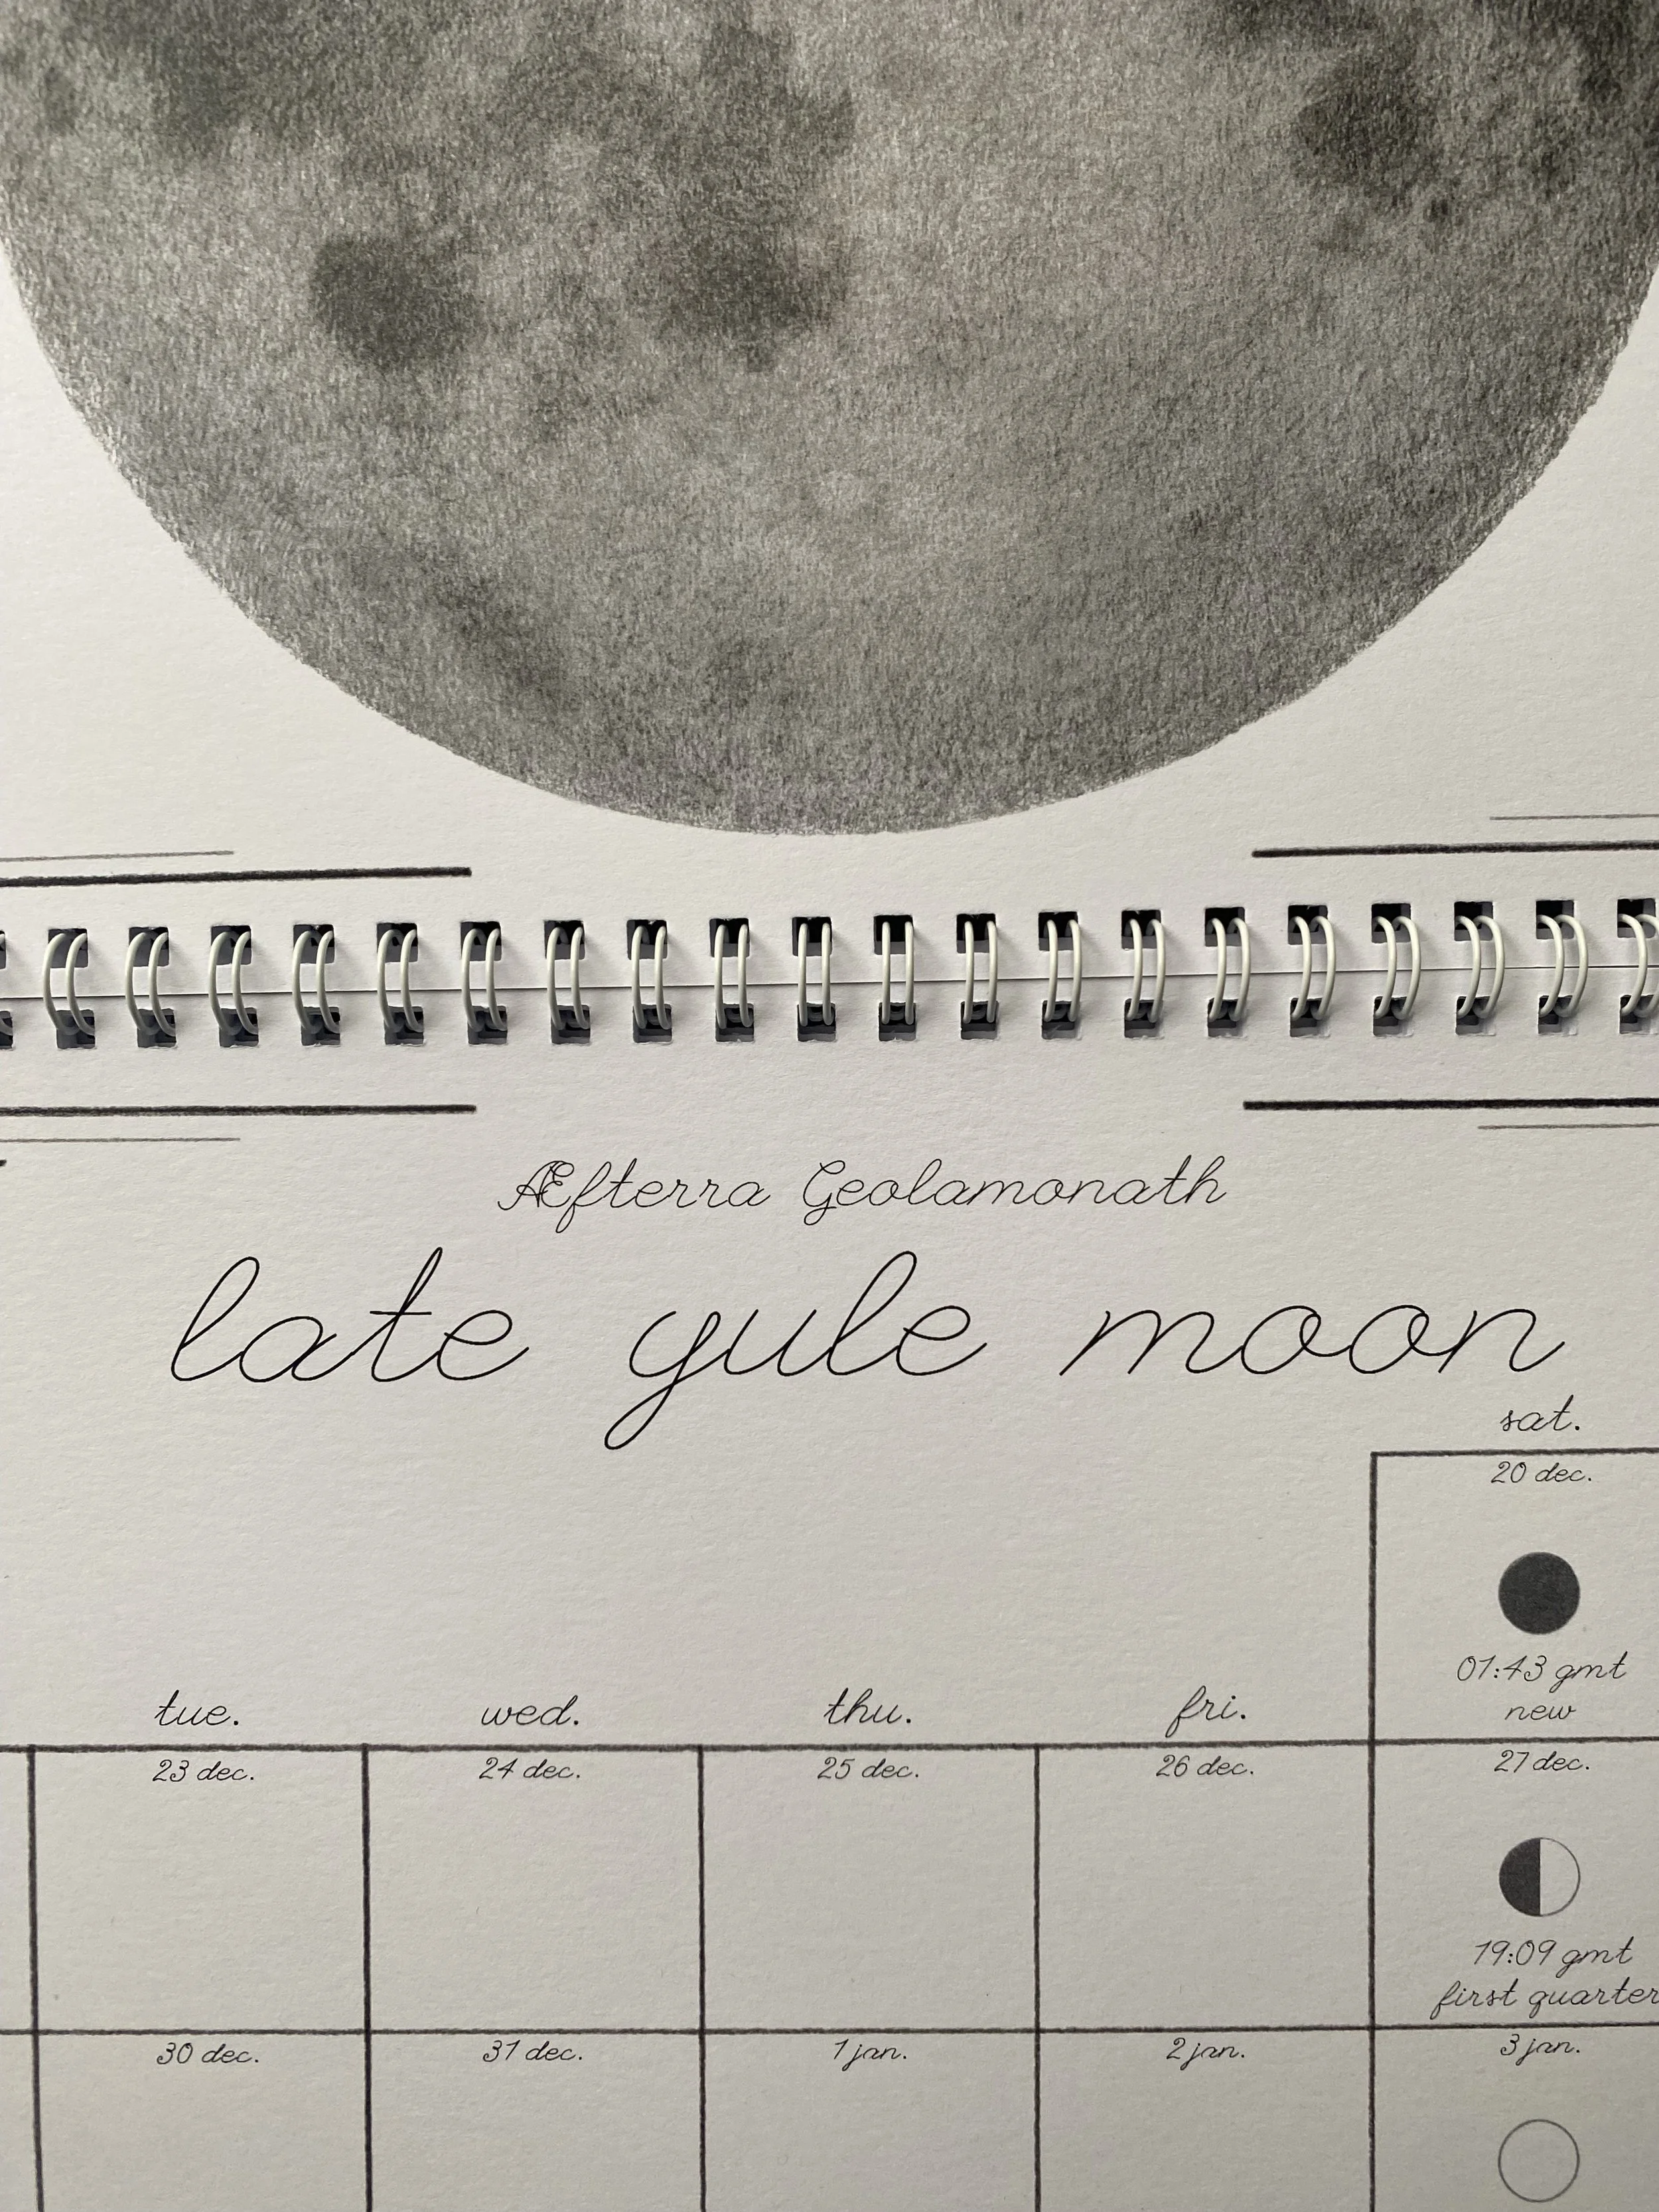 Æfterra Geolamonath
late yule moon
sat.
20 dec.
01:43 gmt
new
tue. wed. thu. fri.
23 dec. 24 dec. 25 dec. 26 dec. 27 dec.
19:09 gmt
first quarter
30 dec. 31 dec. 1 jan. 2 jan. 3 jan.